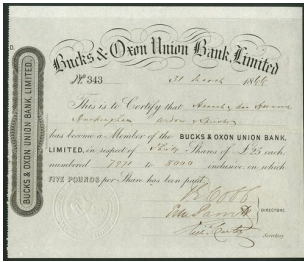 BUCKS & OXON UNION BANK, LIMITED.
Bucks & Oxon Union Bank, Limited
No. 343
31 March 1866
This is to Certify that
Buckingham
has become a Member of the BUCKS & OXON UNION BANK,
LIMITED, in respect of Thirty Shares of £25 each
numbered 7971 to 8000 inclusive on which
FIVE POUNDS per Share has been paid
DIRECTORS.
Secretary